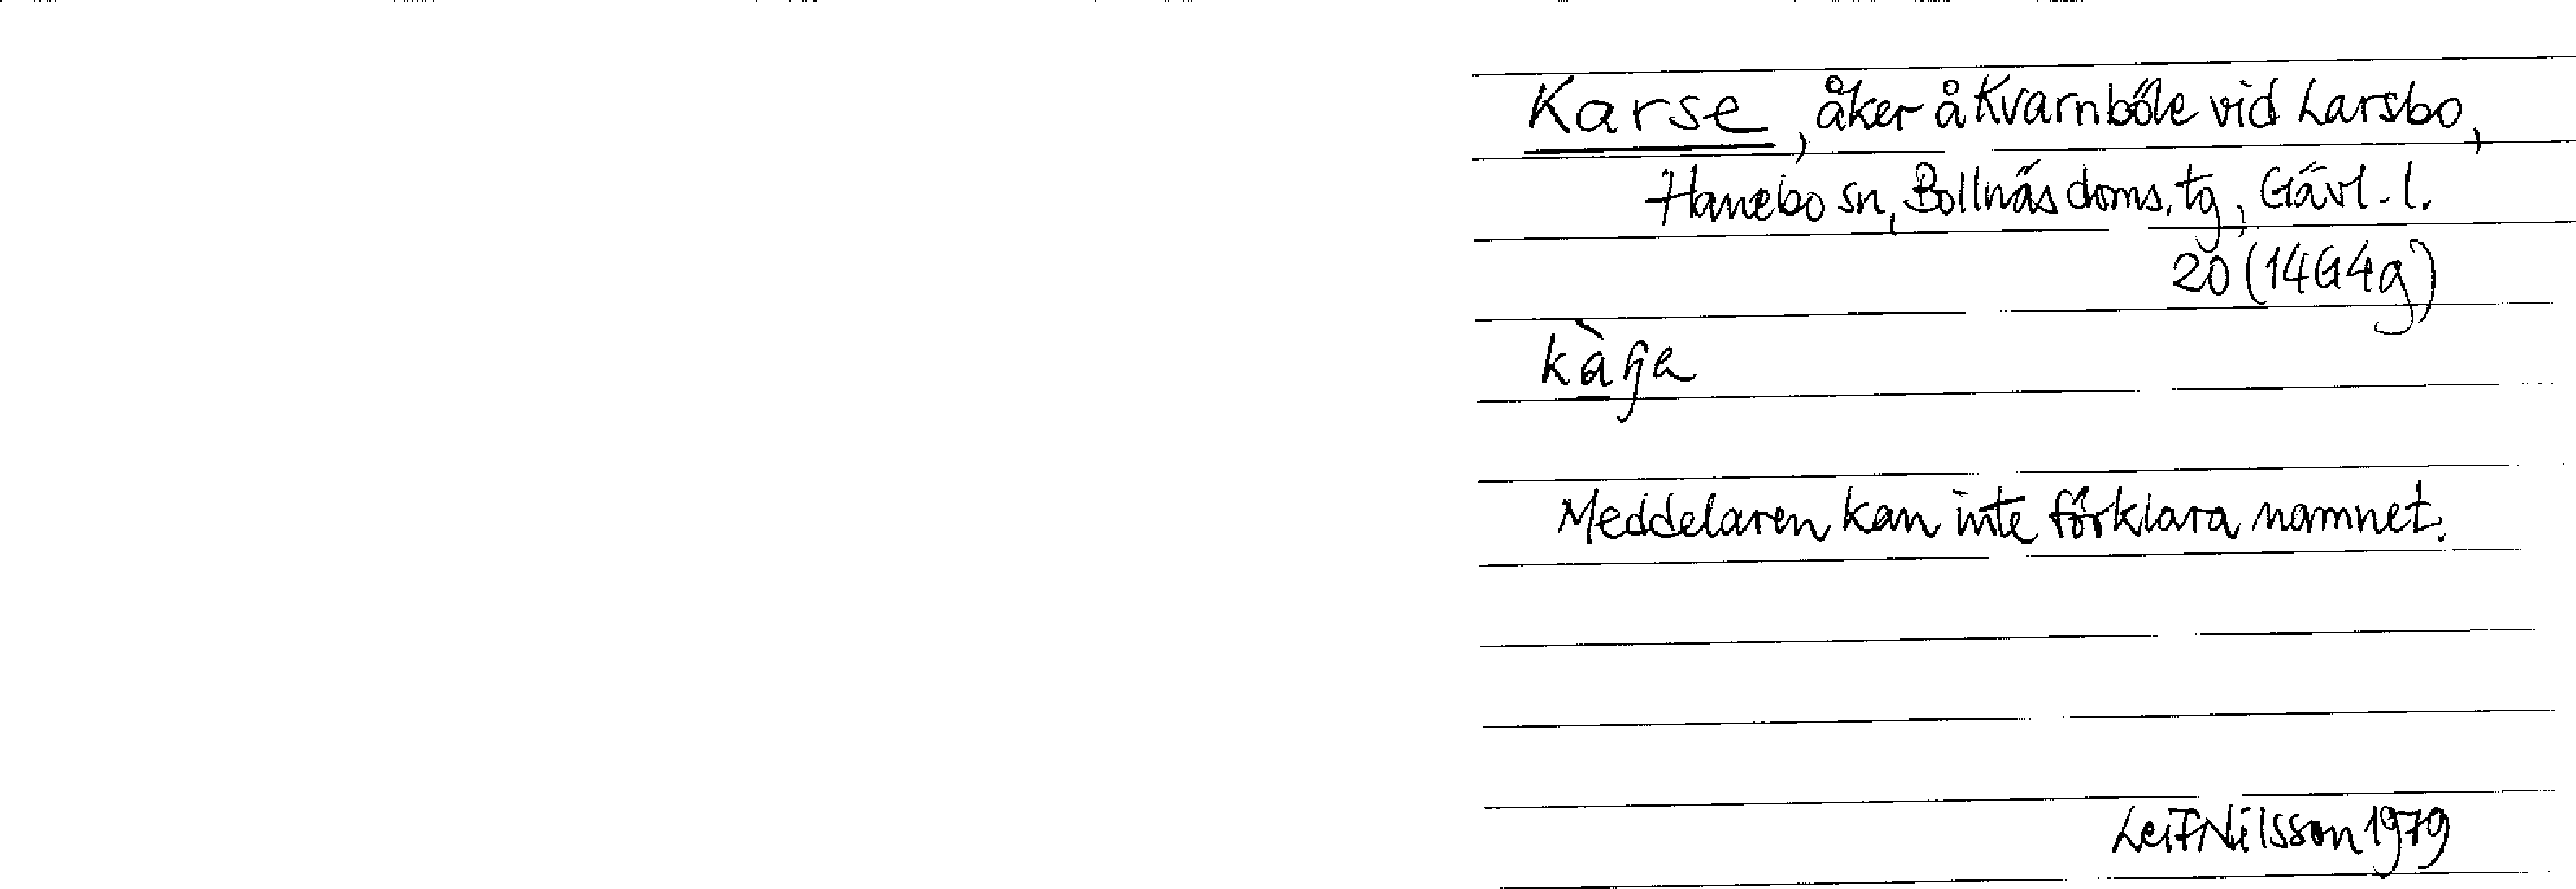 Karse, åker å Kvarnböle vid Larsbo,
Hanebo sn, Bollnäs doms. tg, Gävl. l.
20 (14G4g)
Meddelaren kan inte förklara namnet.
Leif Nilsson 1979